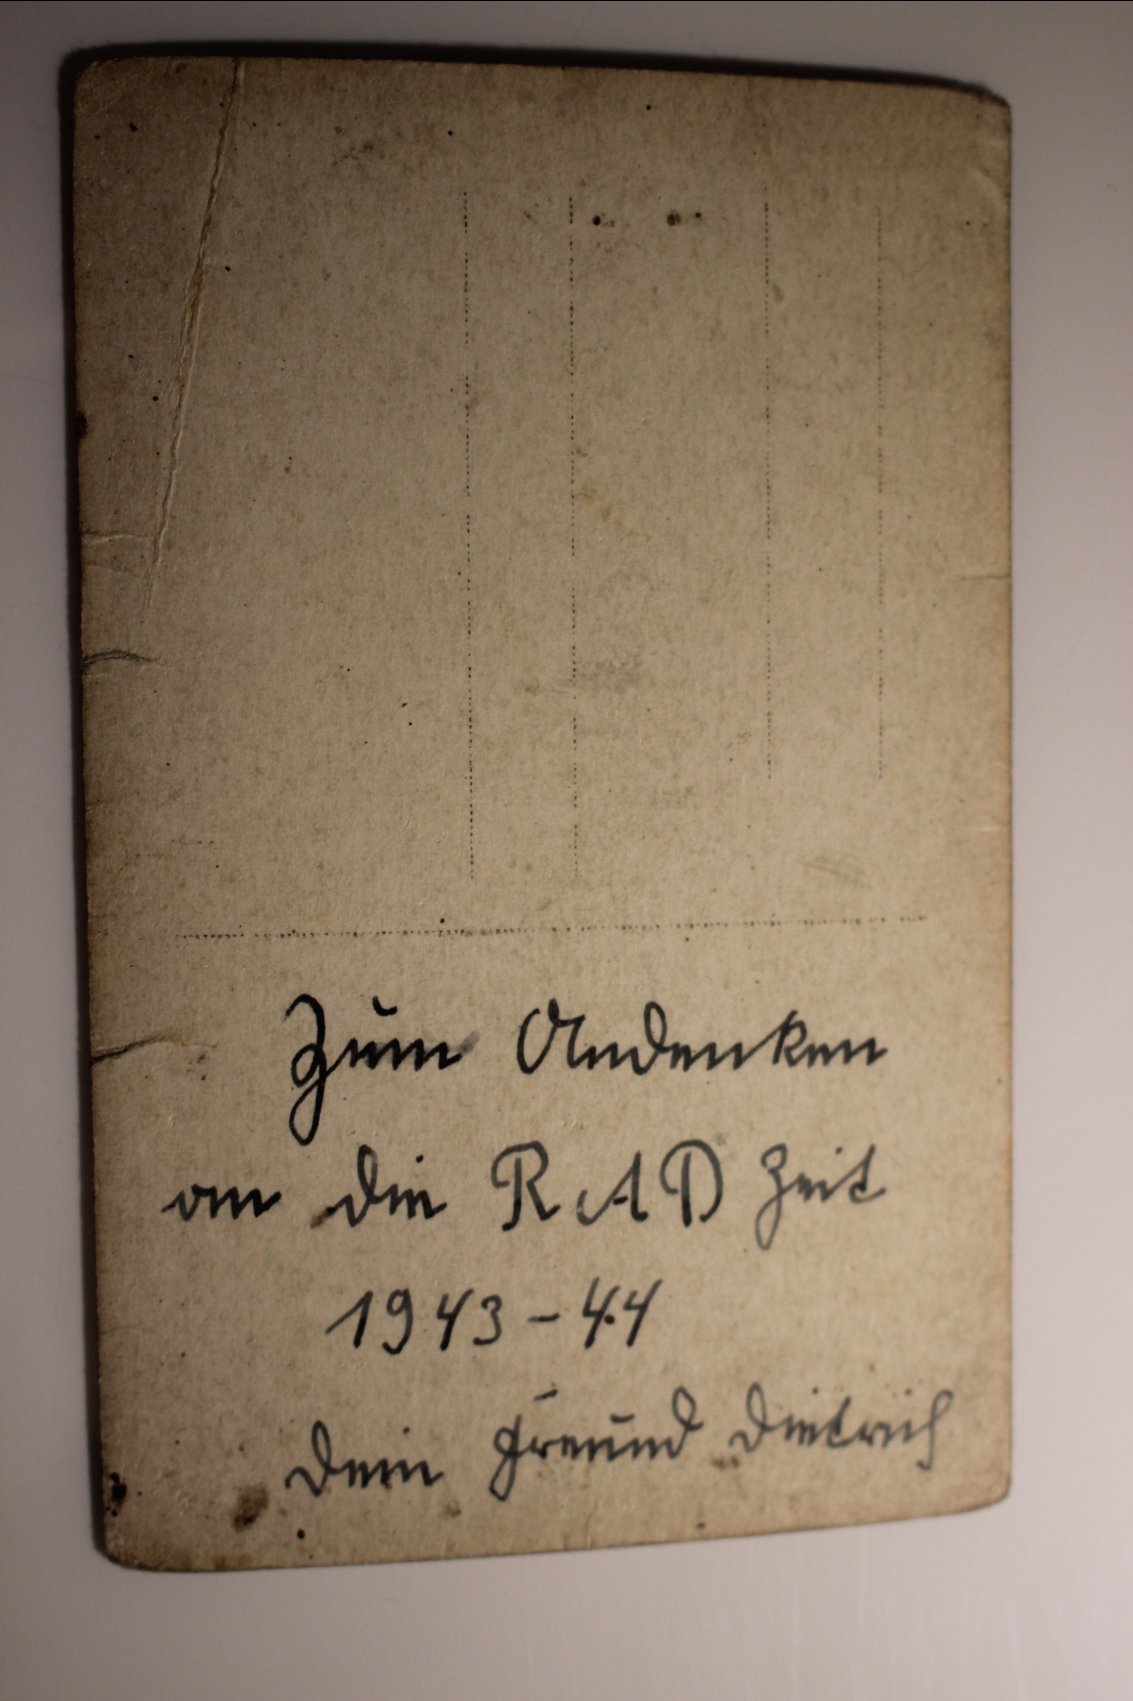 Zum Andenken
an die RAD Zeit
1943-44
Dein Freund Dietrich